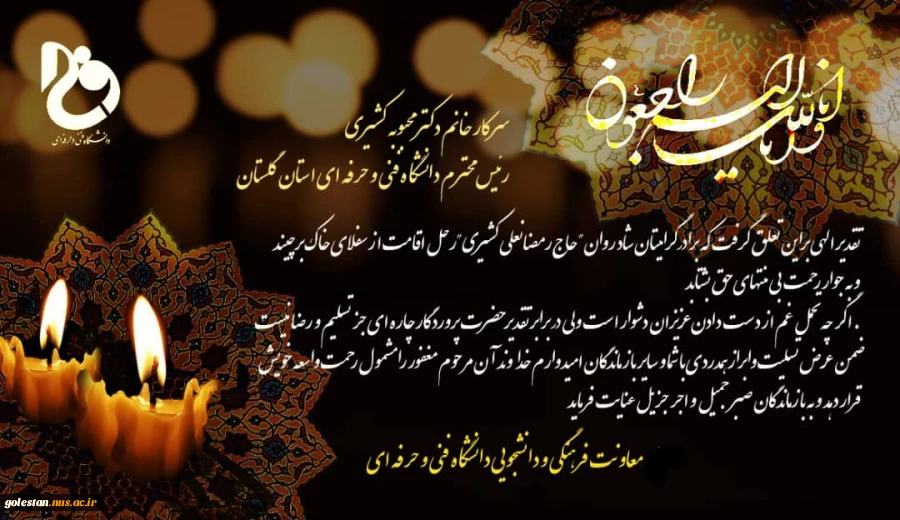 انا لله و انا الیه راجعون
دانشگاه فنی و حرفه‌ای
سرکار خانم دکتر محبوبه کشیری
رئیس محترم دانشگاه فنی و حرفه ای استان گلستان
تقدیر الهی بر این تعلق گرفت که برادر گرامیتان شادروان "حاج رمضانعلی کشیری" رحل اقامت از سفلای خاک برچیند
و به جوار رحمت بی منتهای حق بشتابد
. اگر چه تحمل غم از دست دادن عزیزان دشوار است ولی در برابر تقدیر حضرت پروردگار چاره ای جز تسلیم و رضا نیست
ضمن عرض تسلیت و ابراز همدردی با شما و سایر بازماندگان امیدوارم خداوند آن مرحوم مغفور را مشمول رحمت واسعه خویش
قرار دهد و به بازماندگان صبر جمیل و اجر جزیل عنایت فرماید
معاونت فرهنگی و دانشجویی دانشگاه فنی و حرفه ای
golestan.nus.ac.ir